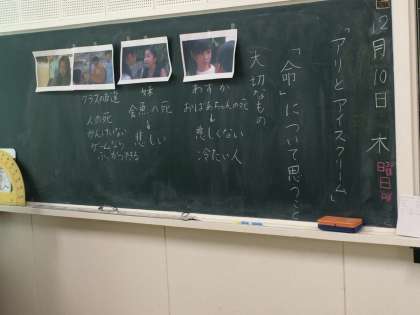 12月10日 木曜日
「アリとアイスクリーム」
「命」について思うこと
大切なもの
わすか
おばあちゃんの死
↓
悲しくない
冷たい人
妹
金魚の死
↓
悲しい
クラスの友達
人の死
かんけいない
ゲームなら
ふっかつできる